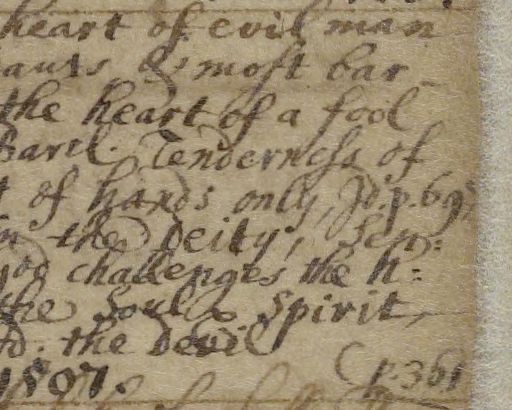 heart of evil man
& most bar
the heart of a fool
Barel. Tenderness of
of hands only, Jd. p. 697
in the Deity, Sen:
God challenges the h:
the Soul & Spirit,
Jd. the Devil
1507. (p. 361